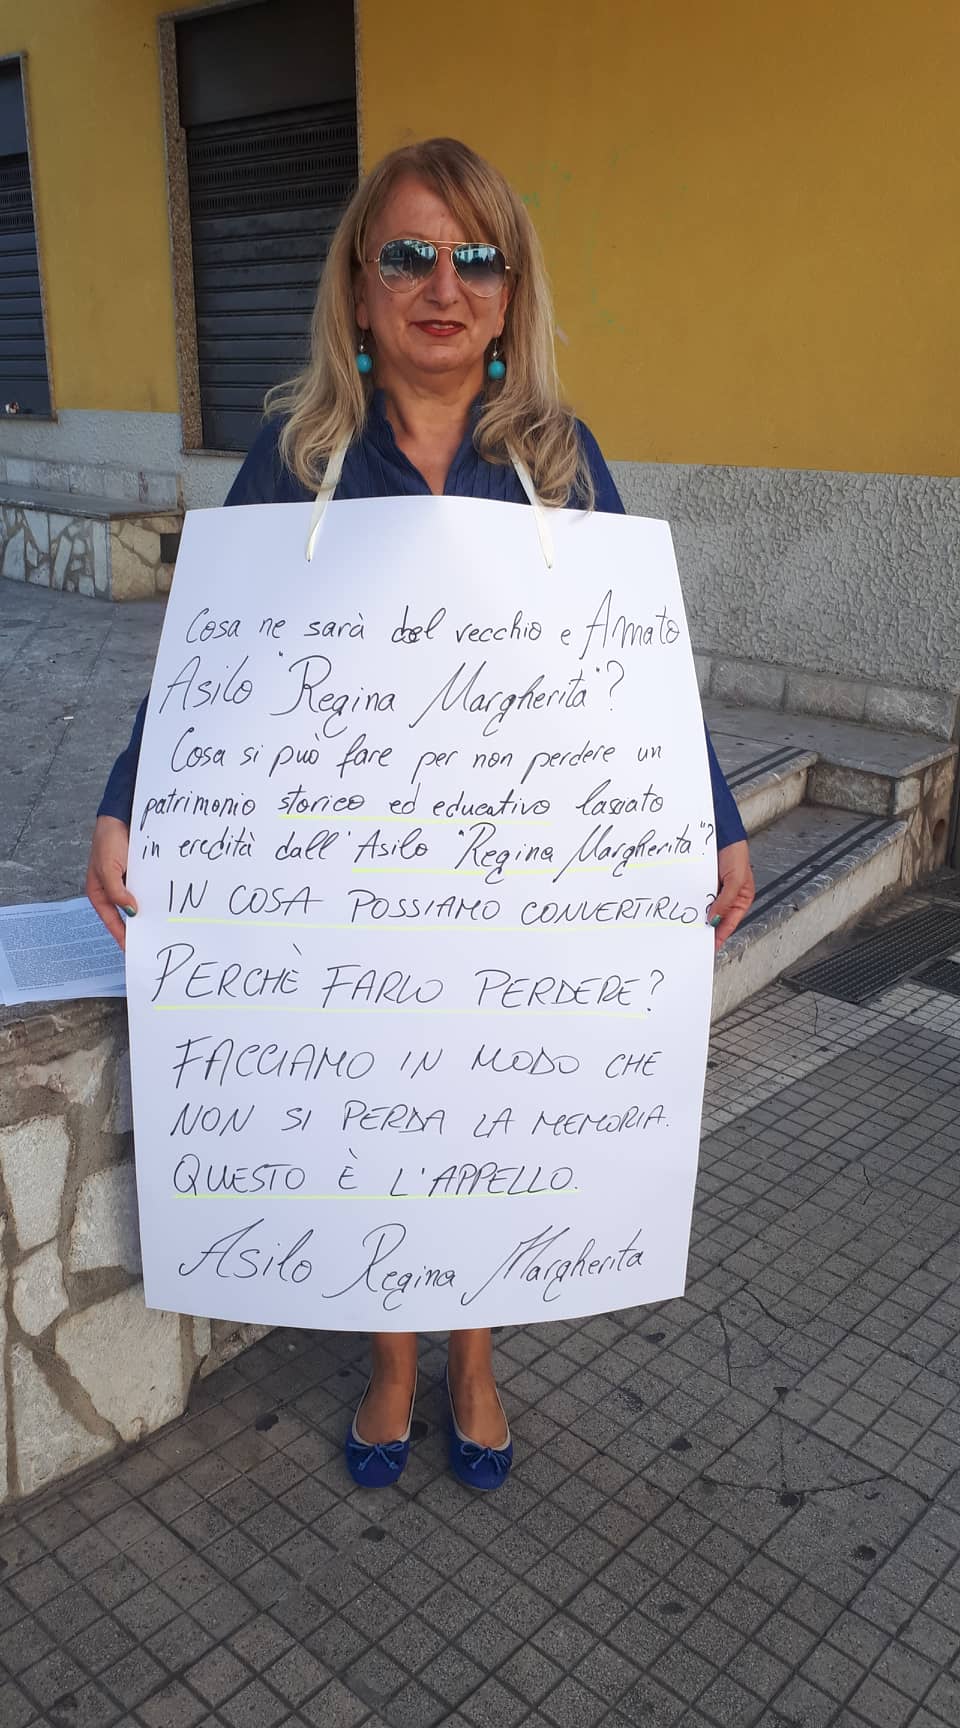 Cosa ne sarà del vecchio e Amato
Asilo "Regina Margherita"?
Cosa si può fare per non perdere un
patrimonio storico ed educativo lasciato
in eredità dall'Asilo "Regina Margherita"?
IN COSA POSSIAMO CONVERTIRLO?
PERCHÈ FARLO PERDERE?
FACCIAMO IN MODO CHE
NON SI PERDA LA MEMORIA.
QUESTO È L'APPELLO.
Asilo Regina Margherita